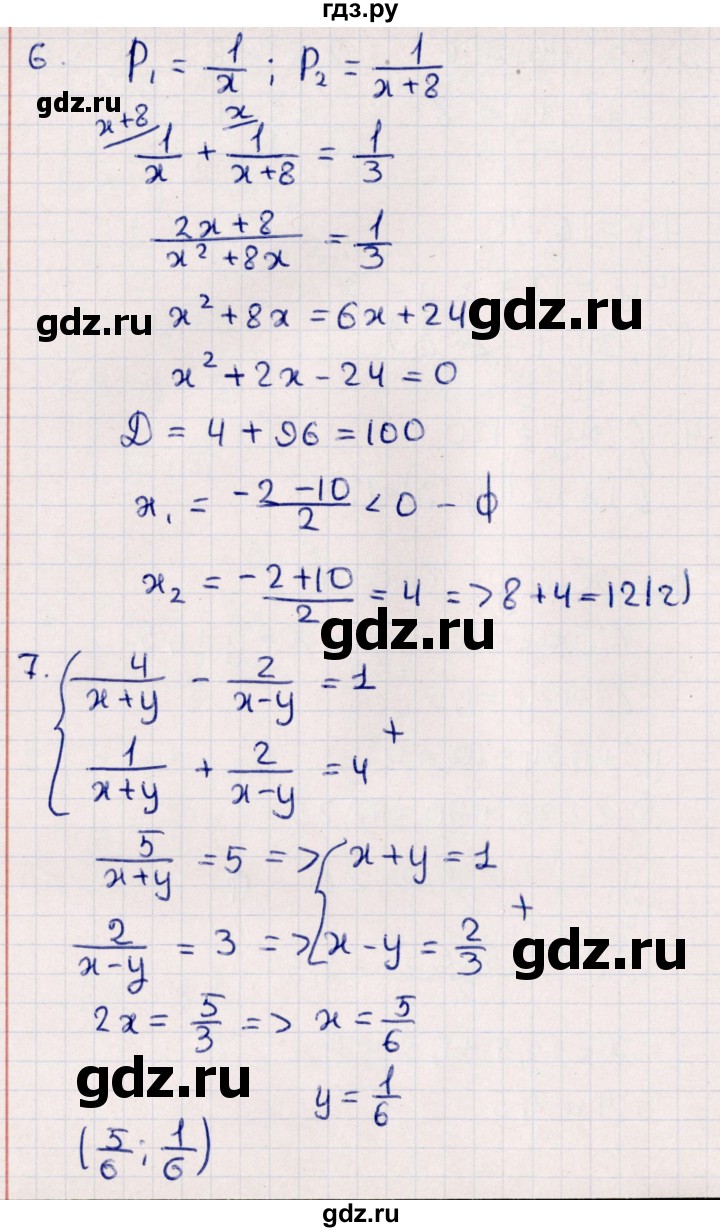 гдз.ру
6. P₁ = 1/x ; P₂ = 1/(x+8)
gdz.ru
x+8 x
1/x + 1/(x+8) = 1/3
(2x+8)/(x²+8x) = 1/3
x²+8x = 6x+24
gdz.ru
gdz.ru
x²+2x-24=0
Д = 4+96=100
x₁ = (-2-10)/2 < 0 - ф
x₂ = (-2+10)/2 = 4 => 8+4=12(2)
gdz.ru
7. { 4/(x+y) - 2/(x-y) = 1
+
1/(x+y) + 2/(x-y) = 4
5/(x+y) = 5 => { x+y=1
+
2/(x-y) = 3 => x-y = 2/3
gdz.ru
2x = 5/3 => x = 5/6
gdz.ru
y = 1/6
(5/6; 1/6)
gdz.ru